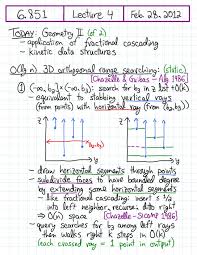 6.851 Lecture 4 Feb. 28, 2012
TODAY: Geometry II (of 2)
- application of fractional cascading
- kinetic data structures
O(lg n) 3D orthogonal range searching: (static)
[Chazelle & Guibas - Alg. 1986]
① (-∞, b₂) × (-∞, b₃): search for b₃ in z list + O(k)
- equivalent to stabbing vertical rays
(from points) with horizontal ray from
z
z
y
y
- draw horizontal segments through points
- subdivide faces to have bounded degree
by extending some horizontal segments
- like fractional cascading: insert ≤ ½
into left neighbor, recurse, add right
⇒ O(n) space [Chazelle - SICOMP 1986]
- query searches for b₃ among left rays
then walks right k steps in O(k)
(each crossed ray = 1 point in output)